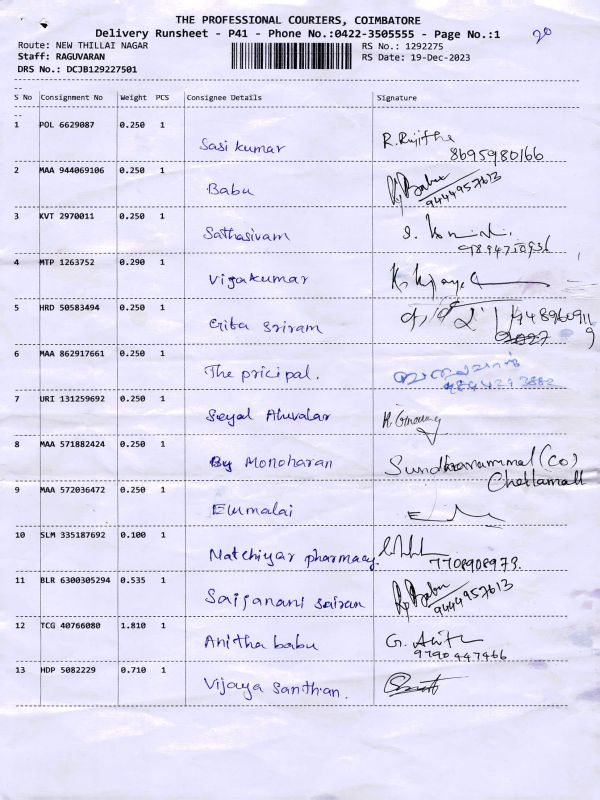 THE PROFESSIONAL COURIERS, COIMBATORE
Delivery Runsheet - P41 - Phone No.:0422-3505555 - Page No.:1
20
Route: NEW THILLAI NAGAR RS No.: 1292275
Staff: RAGUVARAN RS Date: 19-Dec-2023
DRS No.: DCJB129227501
S No Consignment No Weight PCS Consignee Details Signature
1 POL 6629087 0.250 1 Sasi kumar R. Rujitha
8695980166
2 MAA 944069106 0.250 1 Babu Babu
9444957613
3 KVT 2970011 0.250 1 Sathasivam
9894750936
4 MTP 1263752 0.290 1 Vijakumar
5 HRD 50583494 0.250 1 Gita Sriram
6 MAA 862917661 0.250 1 The pricipal.
7 URI 131259692 0.250 1 Seyal Aluvalar
8 MAA 571882424 0.250 1 By Monoharan Sundaranammal (Co)
9 MAA 572036472 0.250 1 Elumalai
10 SLM 335187692 0.100 1 Natchiyar pharmacy
7708908973.
11 BLR 6300305294 0.535 1 Saijanani sairam Babu
9444957613
12 TCG 40766080 1.810 1 Anitha babu G. Anitha
9790447466
13 HDP 5082229 0.710 1 Vijaya Santhan.